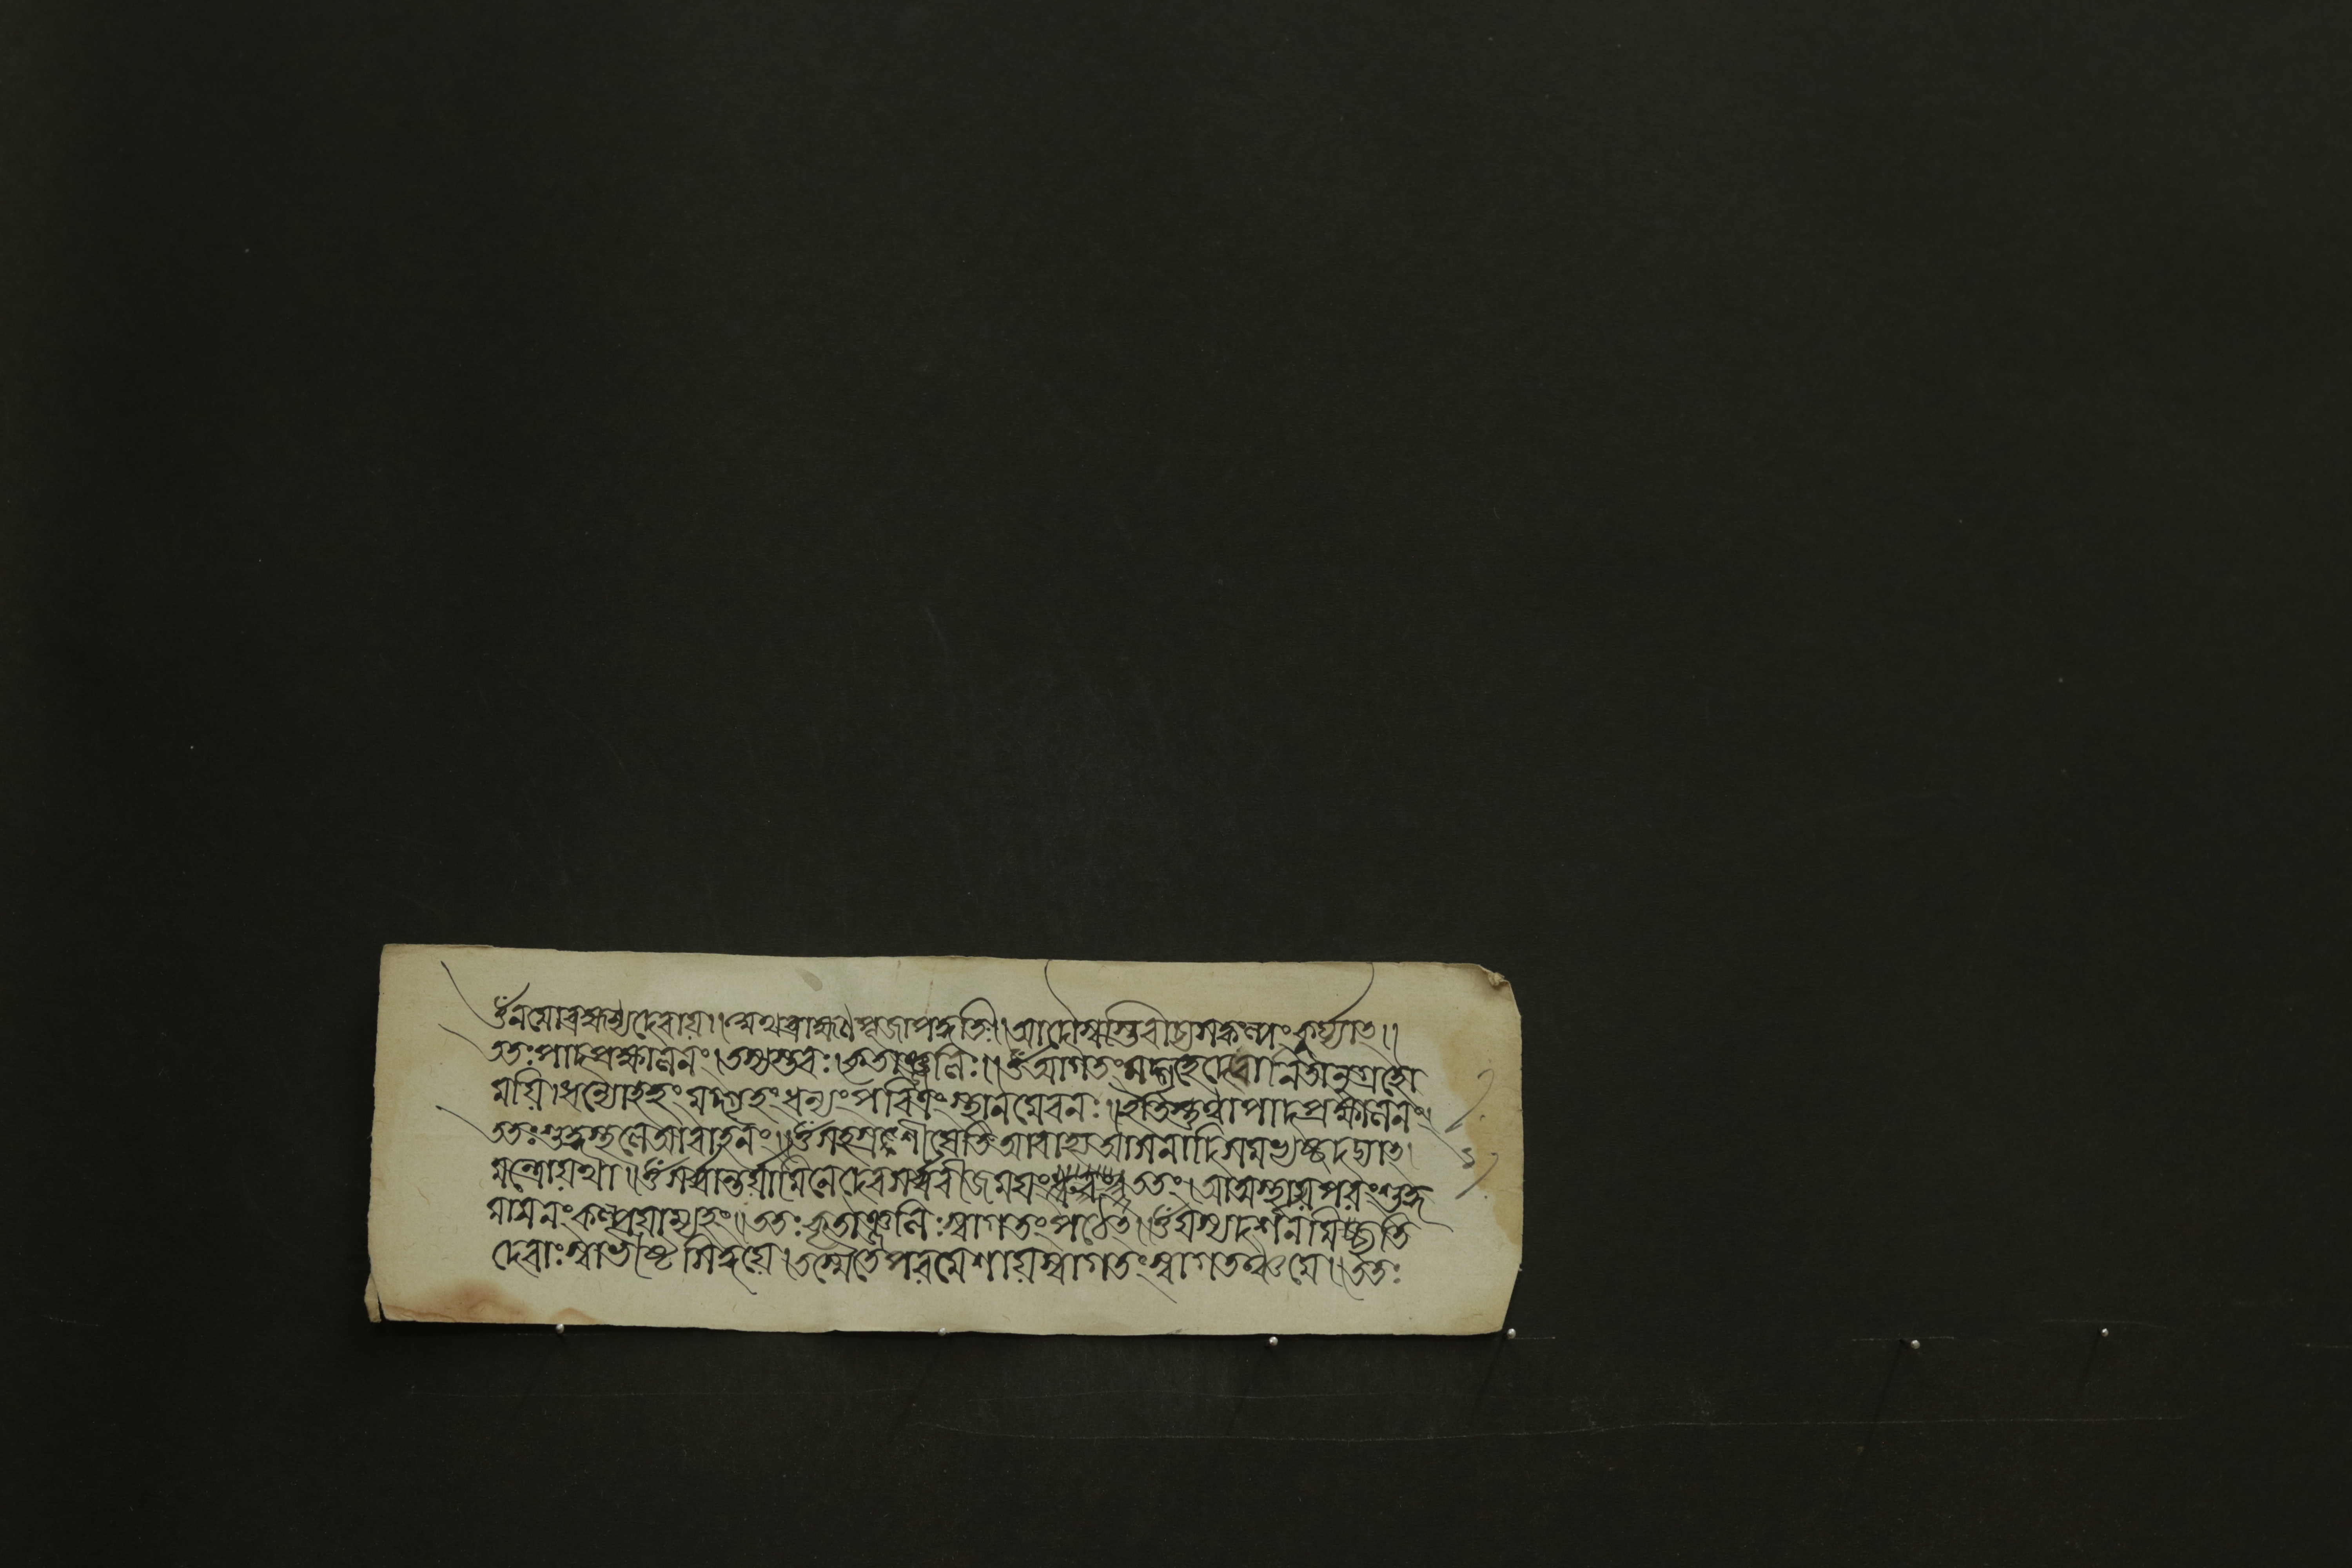 ওঁ নমো ব্রহ্মণ্যদেবায়॥ অথ ব্রাহ্মণ পূজাপদ্ধতিঃ॥ আদৌ স্বস্তি কুর্য্যাৎ॥
ততঃ পাদপ্রক্ষালনং। কৃতাঞ্জলিঃ॥ ওঁ আগতং মদ্গৃহে অনুগ্রহো
ময়ি। ধন্যোহহং মদ্গৃহং ধন্যং পবিত্রং স্থানমেবনঃ॥ ইতি স্তুত্বা পাদপ্রক্ষালনং।
ততঃ শুদ্ধস্থলে আবাহনং॥ ওঁ আবাহ্য আসনাদিকমর্ঘ্যঞ্চ দদ্যাৎ।
মন্ত্রো যথা॥ ওঁ সর্ব্বান্তর্য্যামিনে দেব সর্ব্ববীজময়ং ততঃ। আত্মস্থায় পরং শুদ্ধ
মাসনং কল্পয়াম্যহং॥ ততঃ কৃতাঞ্জলিঃ স্বাগতং পঠেৎ॥ ওঁ যস্য দর্শনমিচ্ছন্তি
দেবাঃ স্বাভীষ্টসিদ্ধয়ে। তস্মৈ তে পরমেশায় স্বাগতং স্বাগতঞ্চ মে॥ ততঃ